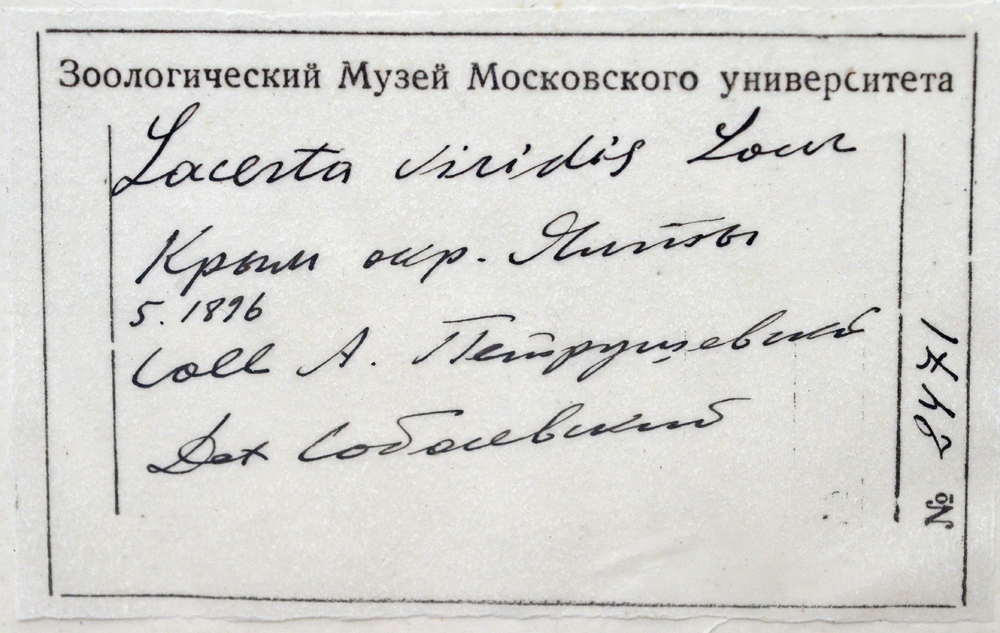 Зоологический Музей Московского университета
Lacerta viridis Laur
Крым окр. Ялты
5. 1896
Coll А. Петрушевский
Det Соболевский
№ 8471